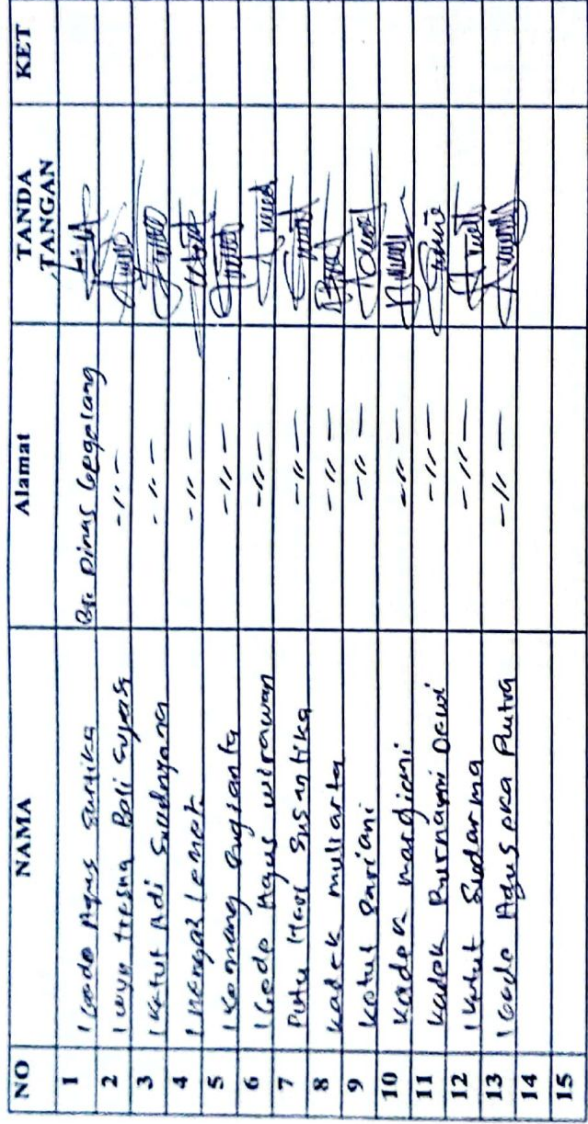 NO NAMA Alamat TANDA TANGAN KET
1 I Gede Agus Sartika Br. Dinas Gegelang
2 I Wyn Tresna Bali -〃-
3 I Ketut Adi -〃-
4 I Nengah Lemek -〃-
5 I Komang Sugianta -〃-
6 I Gede Agus Wirawan -〃-
7 Putu Hari Susantika -〃-
8 Kadek Muliarta -〃-
9 Ketut Sariani -〃-
10 Kadek Mardiani -〃-
11 Kadek Purnami Dewi -〃-
12 I Ketut Sudarma -〃-
13 I Gede Agus oka Putra -〃-
14
15